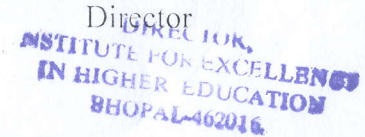 Director
DIRECTOR,
INSTITUTE FOR EXCELLENCE
IN HIGHER EDUCATION
BHOPAL-462016.